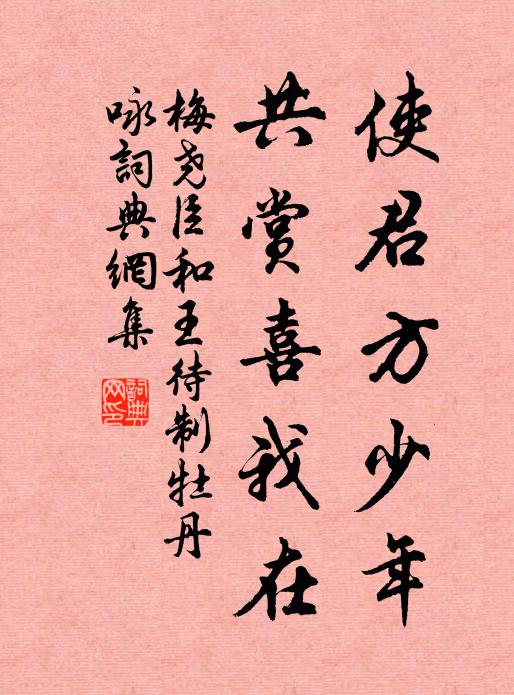 使君方少年
共賞喜我在
梅堯臣和王待制牡丹
咏詞典網集
詞典
网印